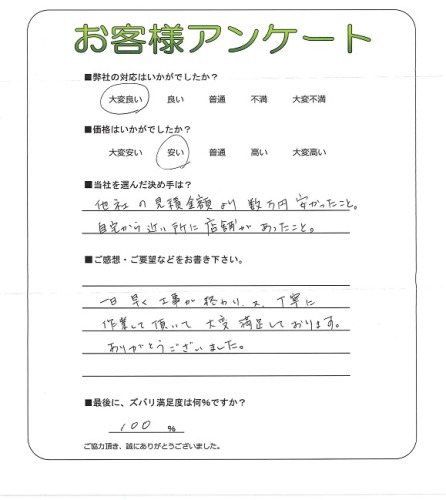 お客様アンケート
■弊社の対応はいかがでしたか?
大変良い 良い 普通 不満 大変不満
■価格はいかがでしたか?
大変安い 安い 普通 高い 大変高い
■当社を選んだ決め手は?
他社の見積金額より数万円安かったこと。
自宅から近い所に店舗があったこと。
■ご感想・ご要望などをお書き下さい。
一日早く工事が終わり、又、丁寧に
作業して頂いて大変満足しております。
ありがとうございました。
■最後に、ズバリ満足度は何%ですか?
100 %
ご協力頂き、誠にありがとうございました。